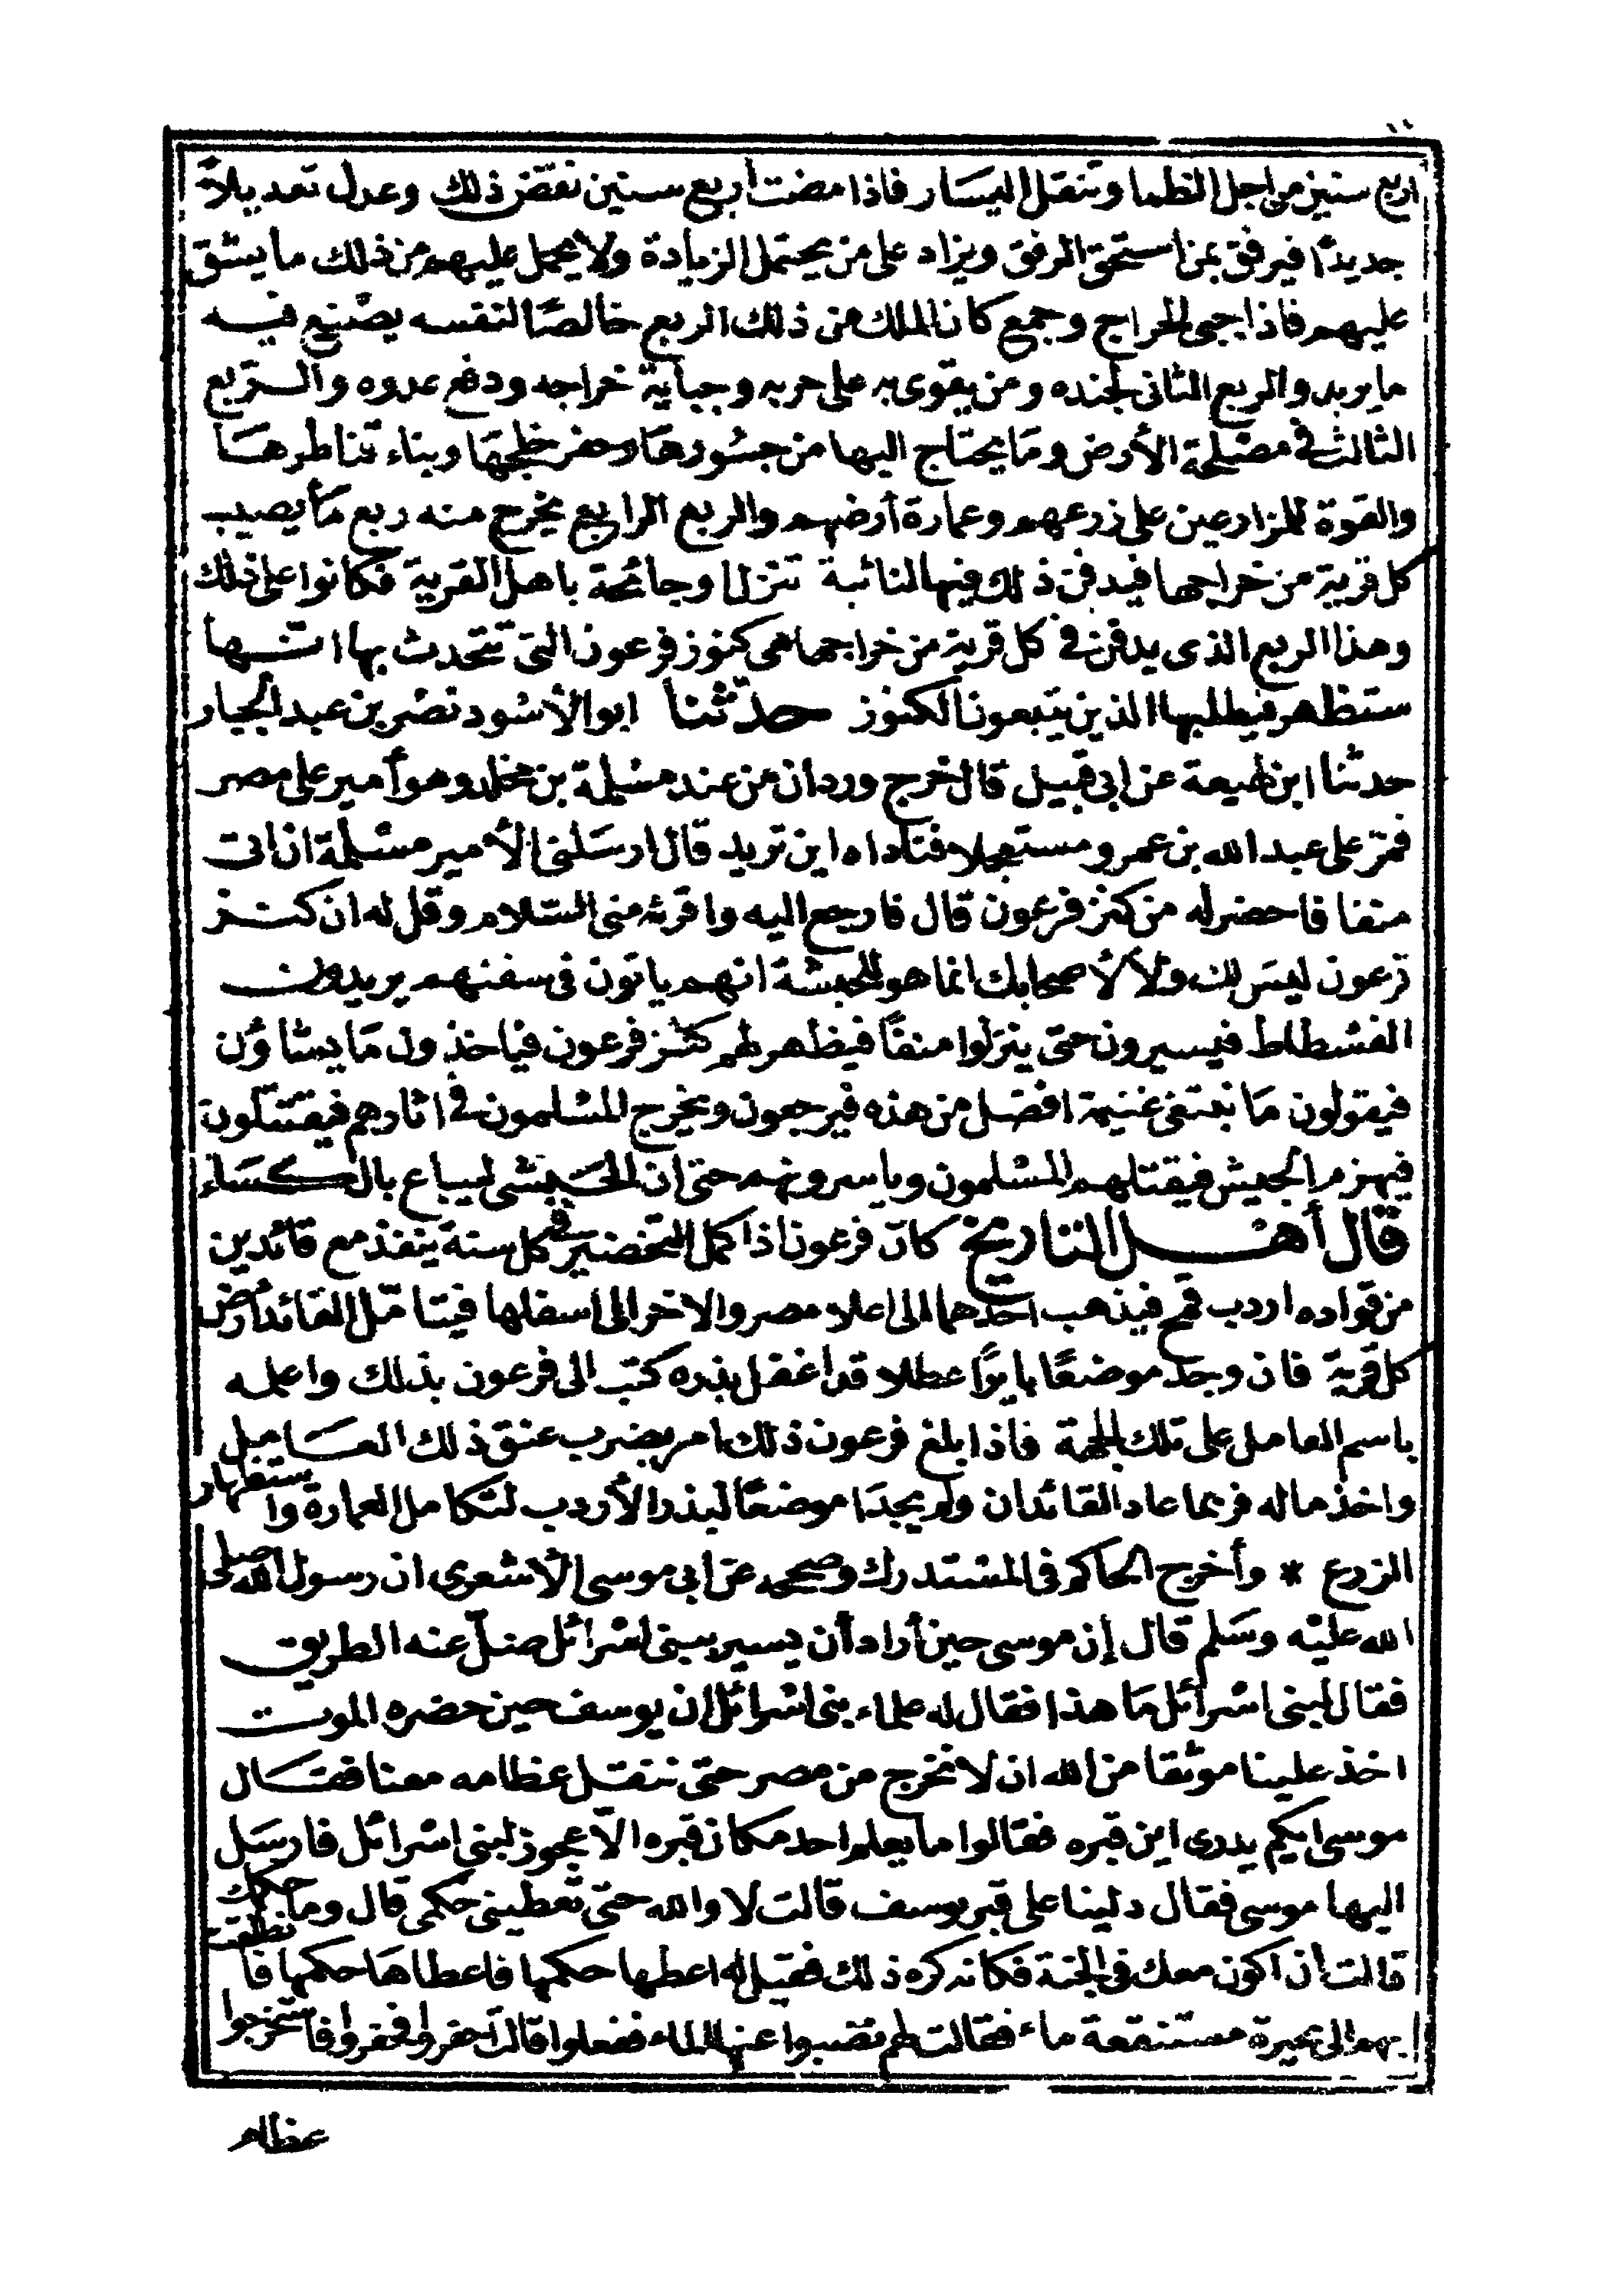 اربع سنين من اجل الظما وتنقل اليسار فاذا مضت أربع سنين نقض ذلك وعدل تعديلاً
جديدًا فيرفق بمن استحق الرفق ويزاد على من يحتمل الزيادة ولا يحمل عليهم من ذلك ما يشق
عليهم فاذا جبى الخراج وجمع كان الملك من ذلك الربع خالصًا لنفسه يصنع فيه
ما يريد والربع الثانى لجنده ومن يقوى به على حربه وجباية خراجه ودفع عدوه والربع
الثالث فى مصلحة الأرض وما يحتاج اليها من جسورها وحفر خلجها وبناء قناطرها
والقوة للمزارعين على زرعهم وعمارة أرضهم والربع الرابع يخرج منه ربع ما يصيب
كل قرية من خراجها فيدفن ذلك فيها لنائبة تنزل او جائحة باهل القرية فكانوا على ذلك
وهذا الربع الذى يدفن فى كل قرية من خراجها هى كنوز فرعون التى تتحدث بها انها
ستظهر فيطلبها الذين يتبعون الكنوز حدثنا ابو الأسود نصر بن عبد الجبار
حدثنا ابن لهيعة عن ابى قبيل قال خرج وردان من عند مسلمة بن مخلد وهو أمير على مصر
فمر على عبد الله بن عمرو مستعجلا فناداه اين تريد قال ارسلنى الأمير مسلمة ان اتى
منفا فاحضر له من كنز فرعون قال فارجع اليه واقرئه منى السلام وقل له ان كنز
فرعون ليس لك ولا لأصحابك انما هو للحبشة انهم ياتون فى سفنهم يريدون
الفسطاط فيسيرون حتى ينزلوا منفًا فيظهر لهم كنز فرعون فياخذون ما يشاؤن
فيقولون ما نبتغى غنيمة افضل من هذه فيرجعون ويخرج المسلمون فى اثارهم فيقتتلون
فيهزم الجيش فيقتلهم المسلمون وياسرونهم حتى ان الحبشى ليباع بالكساء
قال أهل التاريخ كان فرعون اذا كمل التخضير فى كل سنة ينفذ مع قائدين
من قواده اردب قمح فيذهب احدهما الى اعلا مصر والاخر الى اسفلها فيتامل القائد ارض
كل قرية فان وجد موضعًا بايرًا عطلا قد اغفل بذره كتب الى فرعون بذلك واعلمه
باسم العامل على تلك الجهة فاذا بلغ فرعون ذلك امر بضرب عنق ذلك العامل
واخذ ماله فربما عاد القائدان ولم يجدا موضعًا لبذر الأردب لتكامل العمارة واستظهار
الزرع * وأخرج الحاكم فى المستدرك وصححه عن ابى موسى الأشعرى ان رسول الله صلى
الله عليه وسلم قال إن موسى حين أراد أن يسير ببنى اسرائل ضل عنه الطريق
فقال لبنى اسرائل ما هذا فقال له علماء بنى اسرائل إن يوسف حين حضره الموت
اخذ علينا موثقا من الله ان لا نخرج من مصر حتى ننقل عظامه معنا فقال
موسى ايكم يدرى اين قبره فقالوا ما يعلم احد مكان قبره الا عجوز لبنى اسرائل فارسل
اليها موسى فقال دلينا على قبر يوسف قالت لا والله حتى تعطينى حكمى قال وما حكمك
قالت أن اكون معك فى الجنة فكانه كره ذلك فقيل له اعطها حكمها فاعطاها حكمها فانطلقت
بهم الى بحيرة مستنقعة ماء فقالت لهم نضبوا عنها الماء ففعلوا قالت احفروا فحفروا فاستخرجوا
عظام